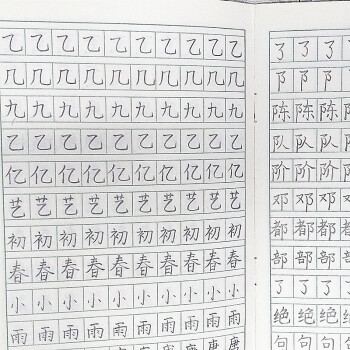 乙乙乙乙乙乙乙乙乙乙
几几几几几几几几几几
九九九九九九九九九九
乙乙乙乙乙乙乙乙乙乙
亿亿亿亿亿亿亿亿亿亿
艺艺艺艺艺艺艺艺艺艺
初初初初初初初初初初
春春春春春春春春春春
小小小小小小小小小小
雨雨雨雨雨雨雨雨雨雨
唐唐
了了了了
阝阝阝阝
陈陈陈陈
队队队队
阶阶阶阶
邓邓邓邓
都都都都
部部部部
了了了了
绝绝绝绝
句句句句